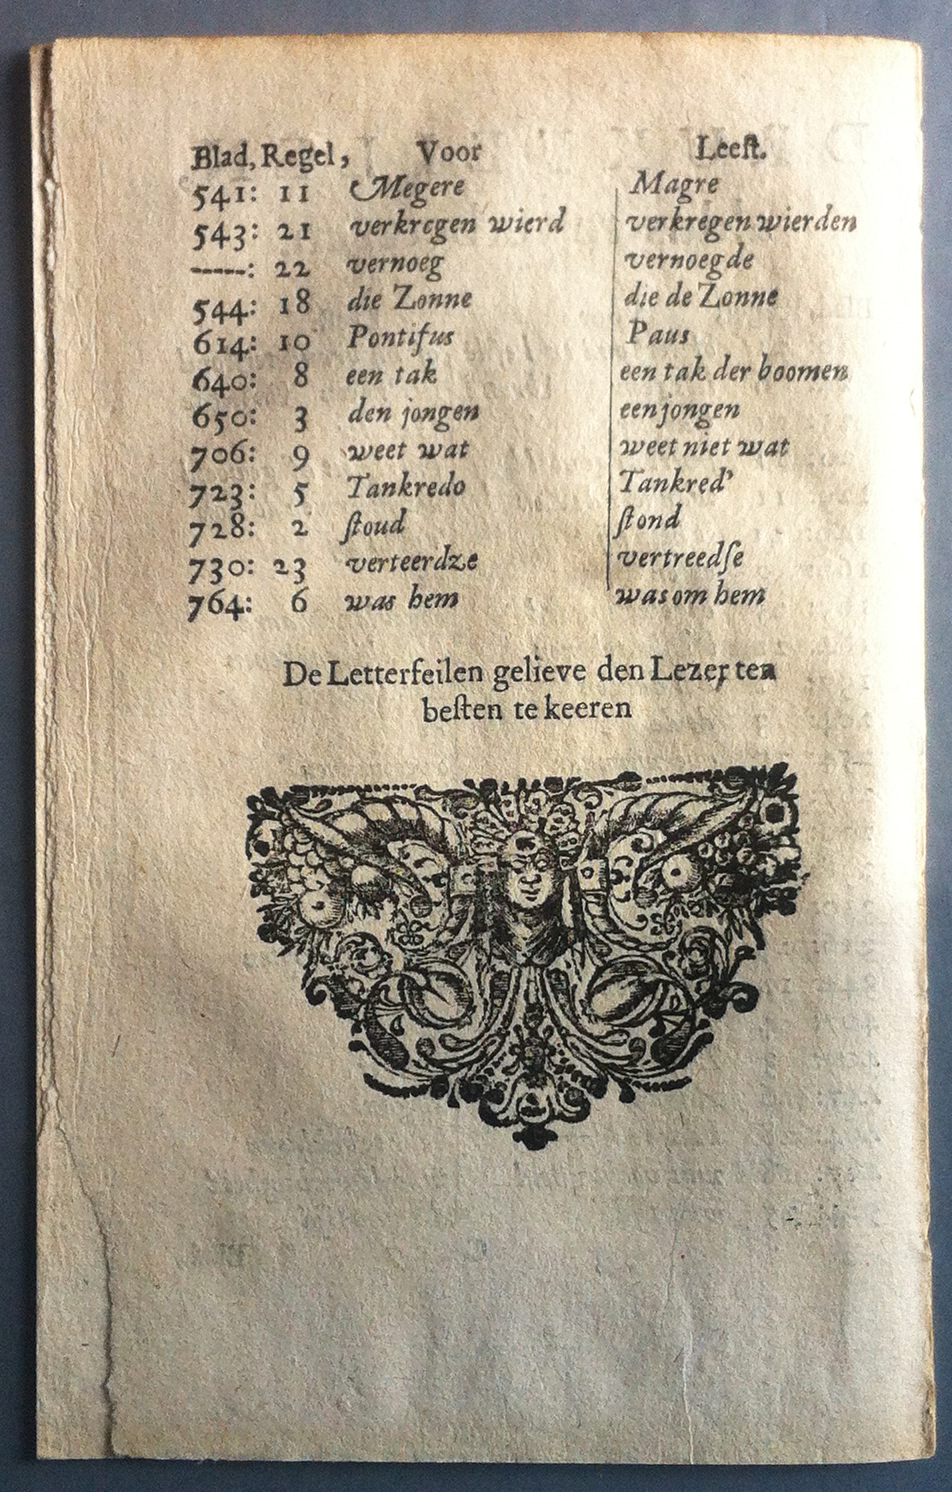 Blad, Regel, Voor Leeſt.
541: 11 Megere Magre
543: 21 verkregen wierd verkregen wierden
-----: 22 vernoeg vernoegde
544: 18 die Zonne die de Zonne
614: 10 Pontifus Paus
640: 8 een tak een tak der boomen
650: 3 den jongen een jongen
706: 9 weet wat weet niet wat
723: 5 Tankredo Tankred'
728: 2 ſtoud ſtond
730: 23 verteerdze vertreedſe
764: 6 was hem was om hem
De Letterfeilen gelieve den Lezer ten
beſten te keeren